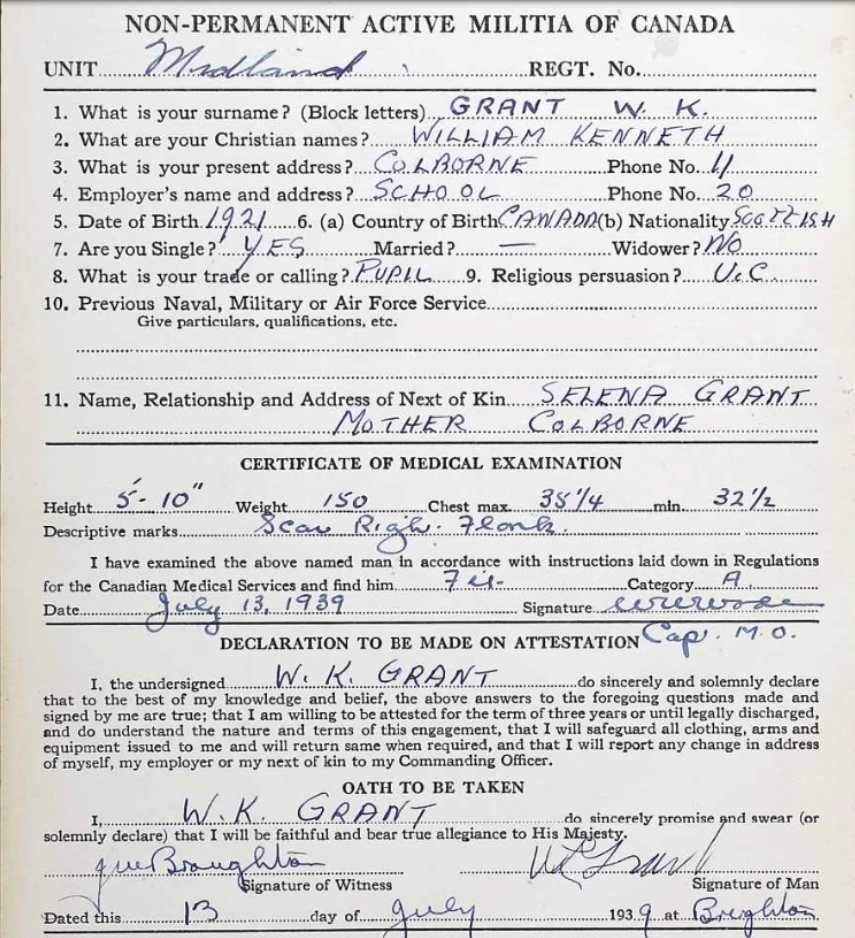 NON-PERMANENT ACTIVE MILITIA OF CANADA
UNIT Midland REGT. No.
1. What is your surname? (Block letters) GRANT W. K.
2. What are your Christian names? WILLIAM KENNETH
3. What is your present address? COLBORNE Phone No. 11
4. Employer's name and address? SCHOOL Phone No. 20
5. Date of Birth 1921 6. (a) Country of Birth CANADA (b) Nationality SCOTTISH
7. Are you Single? YES Married? — Widower? NO
8. What is your trade or calling? PUPIL 9. Religious persuasion? U.C.
10. Previous Naval, Military or Air Force Service
Give particulars, qualifications, etc.
11. Name, Relationship and Address of Next of Kin SELENA GRANT
MOTHER COLBORNE
CERTIFICATE OF MEDICAL EXAMINATION
Height 5'-10" Weight 150 Chest max. 35 1/4 min. 32 1/2
Descriptive marks Scar Righ. Flank.
I have examined the above named man in accordance with instructions laid down in Regulations
for the Canadian Medical Services and find him Fit Category A.
Date July 13, 1939 Signature
Cap. M.O.
DECLARATION TO BE MADE ON ATTESTATION
I, the undersigned W. K. GRANT do sincerely and solemnly declare
that to the best of my knowledge and belief, the above answers to the foregoing questions made and
signed by me are true; that I am willing to be attested for the term of three years or until legally discharged,
and do understand the nature and terms of this engagement, that I will safeguard all clothing, arms and
equipment issued to me and will return same when required, and that I will report any change in address
of myself, my employer or my next of kin to my Commanding Officer.
OATH TO BE TAKEN
I, W. K. GRANT do sincerely promise and swear (or
solemnly declare) that I will be faithful and bear true allegiance to His Majesty.
Broughton WK Grant
Signature of Witness Signature of Man
Dated this 13 day of July 1939 at Brighton